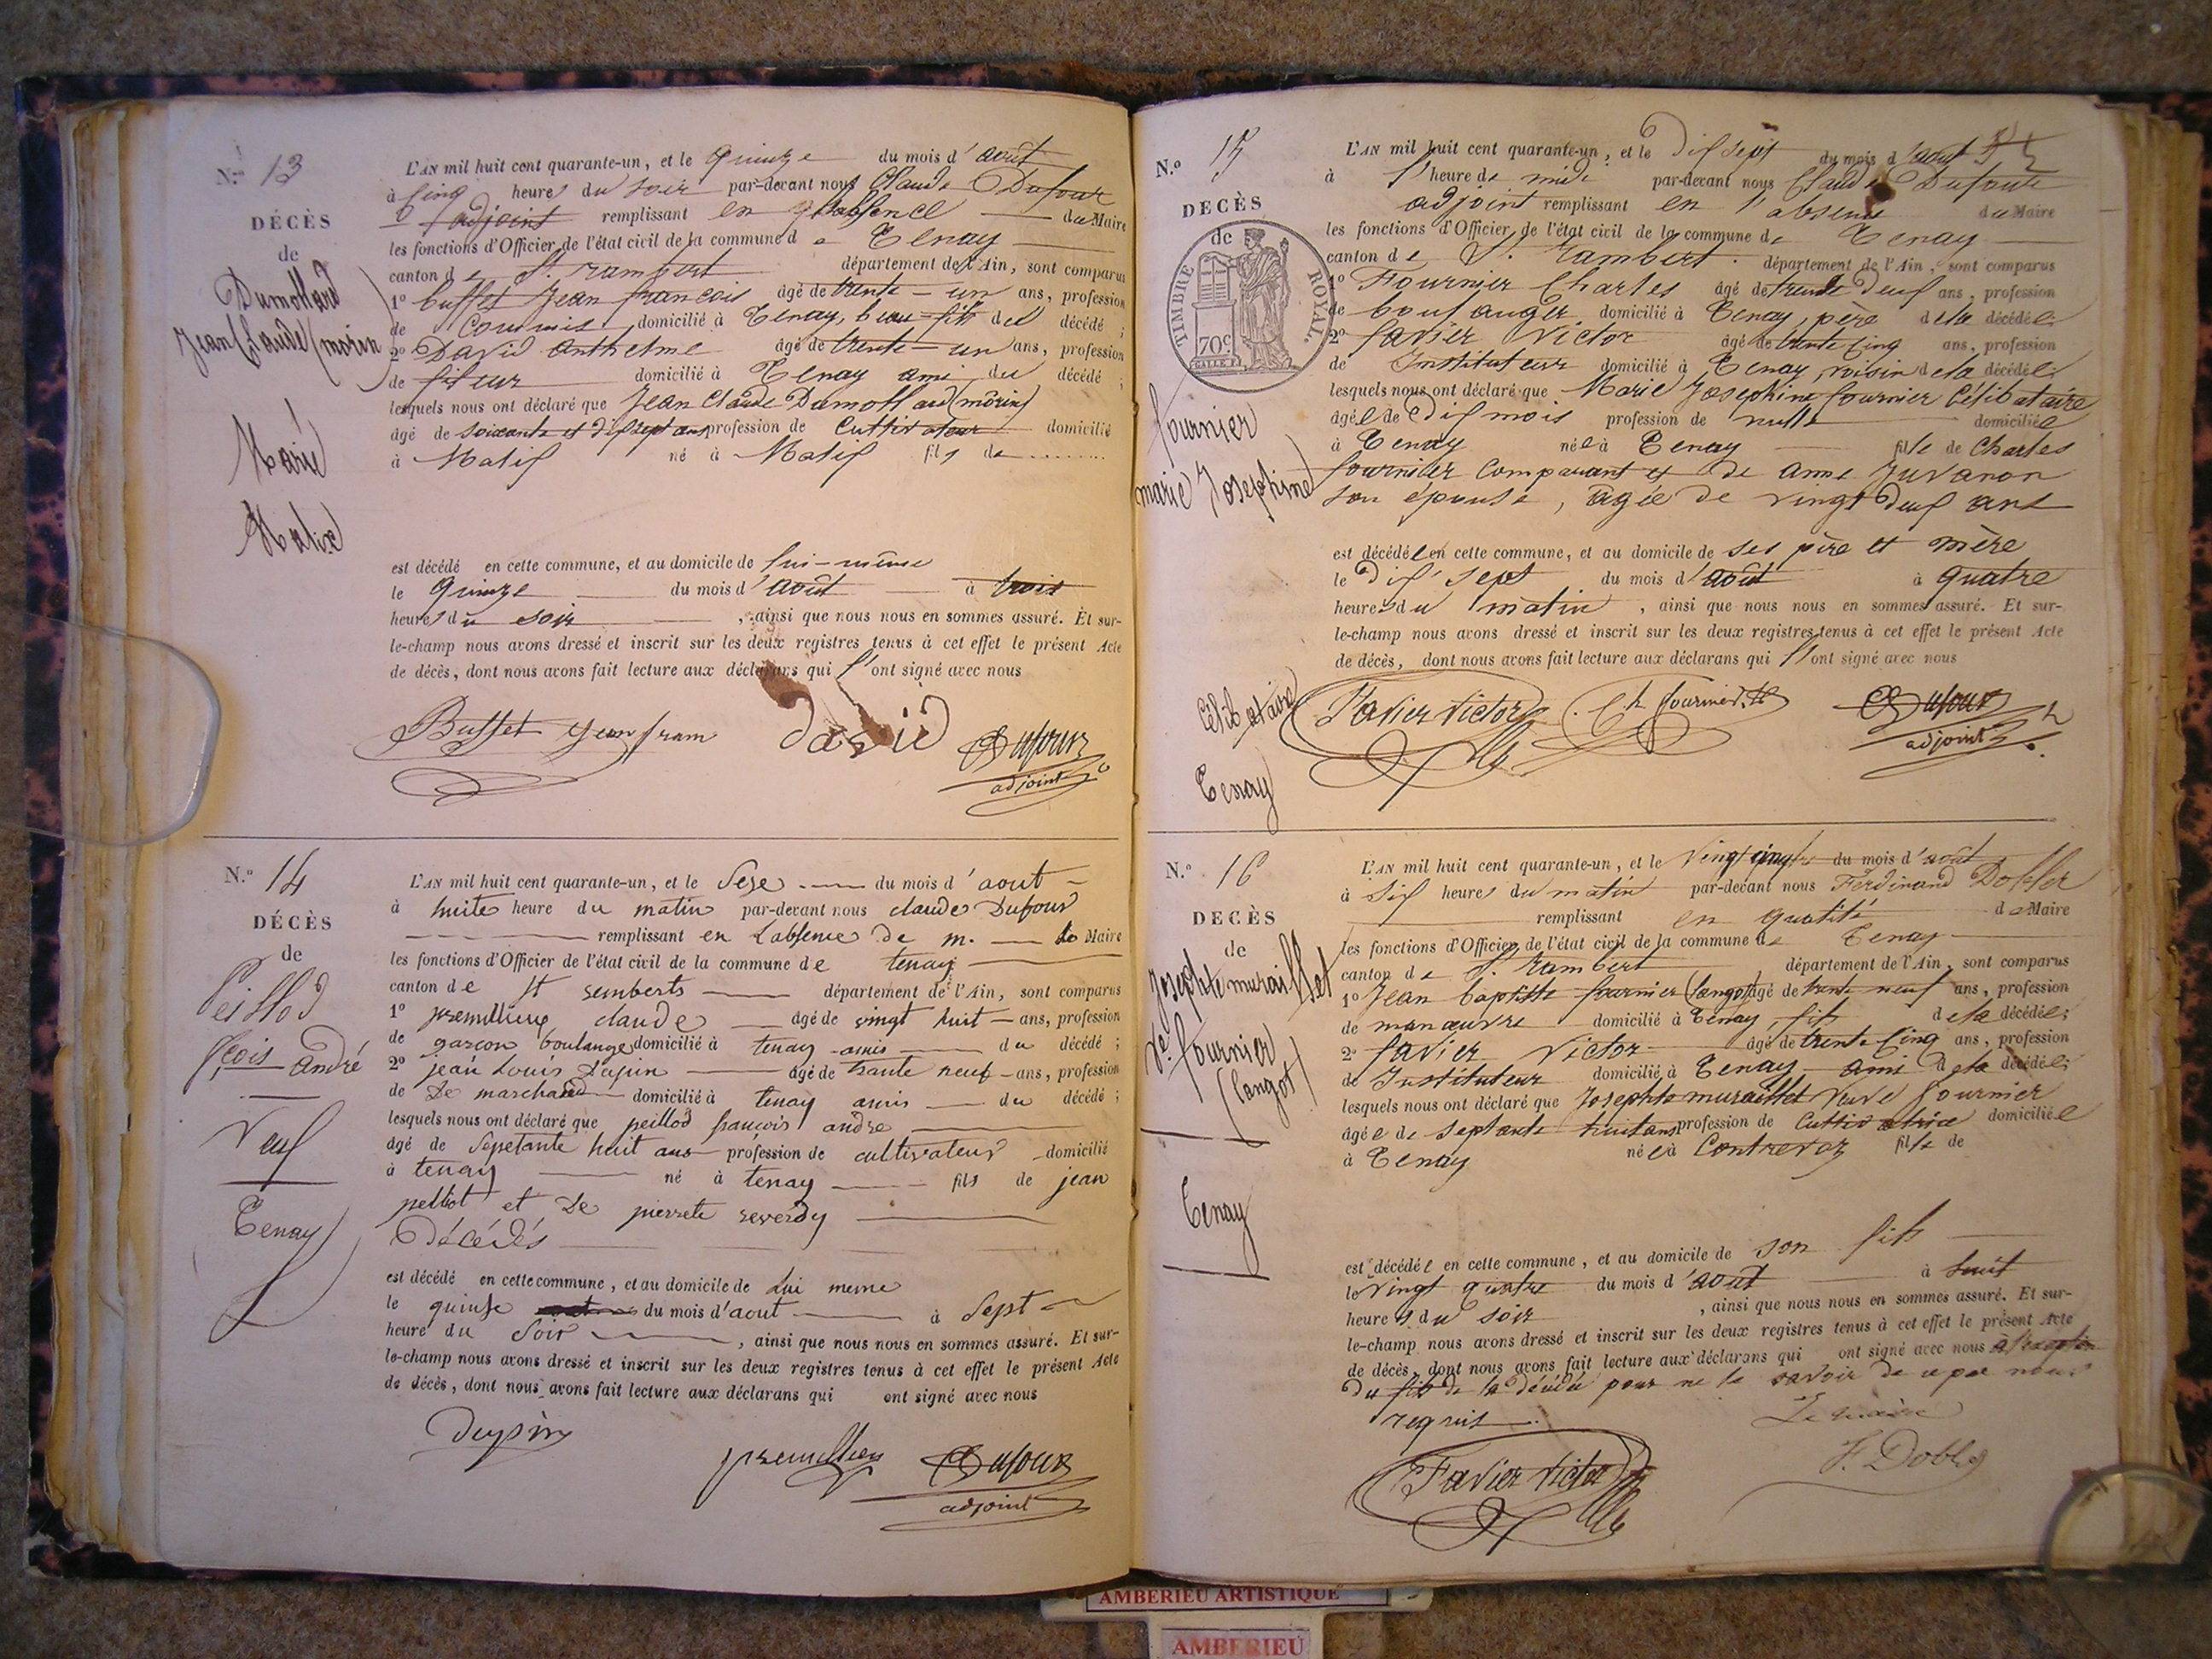 N.º 13
DÉCÈS
de
Dumollard
Jean Claude (morin)
Marié
Malix
L'AN mil huit cent quarante-un, et le quinze du mois d'août
à cinq heures du soir par-devant nous Claude Dufour
adjoint remplissant en l'absence du Maire
les fonctions d'Officier de l'état civil de la commune de Tenay
canton de St. rambert département de l'Ain, sont comparus
1º buffet Jean françois âgé de trente-un ans, profession
de Commis domicilié à Tenay, beau-fils du décédé ;
2º David anthelme âgé de trente-un ans, profession
de fileur domicilié à Tenay ami du décédé ;
lesquels nous ont déclaré que Jean Claude Dumollard (morin)
âgé de soixante et dix sept ans profession de Cultivateur domicilié
à Malix né à Malix fils de
est décédé en cette commune, et au domicile de lui-même
le quinze du mois d'août à trois
heures du soir , ainsi que nous nous en sommes assuré. Et sur-
le-champ nous avons dressé et inscrit sur les deux registres tenus à cet effet le présent Acte
de décès, dont nous avons fait lecture aux déclarans qui l'ont signé avec nous
Buffet Jean fram david CDufour
adjoint
N.º 14
DÉCÈS
de
Peillod
fçois andré
Veuf
Tenay
L'AN mil huit cent quarante-un, et le seze du mois d'aout
à huite heure du matin par-devant nous claude Dufour
remplissant en Labsence de m. le Maire
les fonctions d'Officier de l'état civil de la commune de tenay
canton de st remberts département de l'Ain, sont comparus
1º premillieux claude âgé de vingt huit ans, profession
de garçon boulange domicilié à tenay amis du décédé ;
2º jean Louis Dupin âgé de trante neuf ans, profession
de De marchand domicilié à tenay amis du décédé ;
lesquels nous ont déclaré que peillod françois andre
âgé de Sepetante huit ans profession de cultivateur domicilié
à tenay né à tenay fils de jean
pelliot et De pierrete reverdy
Décédés
est décédé en cette commune, et au domicile de Lui meme
le quinse du mois d'aout à Sept
heure du Soir , ainsi que nous nous en sommes assuré. Et sur-
le-champ nous avons dressé et inscrit sur les deux registres tenus à cet effet le présent Acte
de décès, dont nous avons fait lecture aux déclarans qui ont signé avec nous
Dupin premillieu CDufour
adjoint
N.º 15
DÉCÈS
de
TIMBRE ROYAL.
70 c
fournier
marie Josephine
Célibataire
Tenay
L'AN mil huit cent quarante-un, et le dix sept du mois d'août
à 1 heure de midi par-devant nous Claude Dufour
adjoint remplissant en l'absence du Maire
les fonctions d'Officier de l'état civil de la commune de Tenay
canton de St. Rambert département de l'Ain, sont comparus
1º Fournier Charles âgé de trente deux ans, profession
de boulanger domicilié à Tenay, père de la décédée ;
2º favier Victor âgé de trente cinq ans, profession
de Instituteur domicilié à Tenay, voisin de la décédée ;
lesquels nous ont déclaré que Marie Josephine fournier Célibataire
âgée de dix mois profession de nulle domiciliée
à Tenay née à Tenay fille de Charles
fournier Comparant et de anne Juvanon
son épouse, âgée de vingt deux ans
est décédée en cette commune, et au domicile de ses père et mère
le dix sept du mois d'août à quatre
heures du matin , ainsi que nous nous en sommes assuré. Et sur-
le-champ nous avons dressé et inscrit sur les deux registres tenus à cet effet le présent Acte
de décès, dont nous avons fait lecture aux déclarans qui l'ont signé avec nous
Favier Victor Ch fournier CDufour
adjoint
N.º 16
DÉCÈS
de
Josephte muraillet
Ve. fournier
(langot)
Tenay
L'AN mil huit cent quarante-un, et le vingt cinq du mois d'août
à six heures du matin par-devant nous Ferdinand Dobler
remplissant en qualité de Maire
les fonctions d'Officier de l'état civil de la commune de Tenay
canton de St. Rambert département de l'Ain, sont comparus
1º Jean baptiste fournier (langot) âgé de trente neuf ans, profession
de manœuvre domicilié à Tenay, fils de la décédée ;
2º favier Victor âgé de trente cinq ans, profession
de Instituteur domicilié à Tenay ami de la décédée ;
lesquels nous ont déclaré que Josephte muraillet Veuve fournier
âgée de septante huit ans profession de Cultivatrice domiciliée
à Tenay née à Contrevoz fille de
est décédée en cette commune, et au domicile de son fils
le vingt quatre du mois d'août à huit
heures du soir , ainsi que nous nous en sommes assuré. Et sur-
le-champ nous avons dressé et inscrit sur les deux registres tenus à cet effet le présent Acte
de décès, dont nous avons fait lecture aux déclarans qui ont signé avec nous à l'exception
du fils de la décédée pour ne le savoir de ce par nous
requis.
Le maire
Favier Victor F. Dobler
AMBERIEU ARTISTIQUE
AMBERIEU